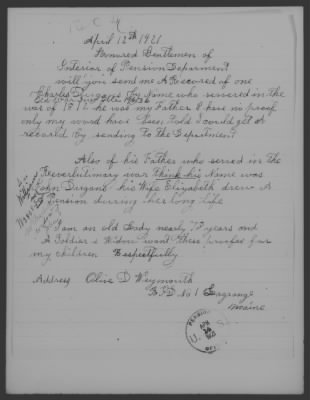 April 12th 1921
Honured Gentlemen of
Interior of Pension Deparment
will you send me A Recored of one
Charles Dugans by Name who serverd in the
war of 1812 he was my Father I have no proof
only my word have Been told I could get A
recorld By sending to the Department
Also of his Father who served in the
Reverlutimary war Think his Name was
John Dugans his Wife Elizabeth drew A
Pension durring her Long Life
I am an old Lady nearly 79 years and
A Soldier s Widow want these proofes for
my children Respectfully
Address Olive D Weymouth
R.F.D No 1 Lagrange
Maine
PENSION
APR
1921
U.S.